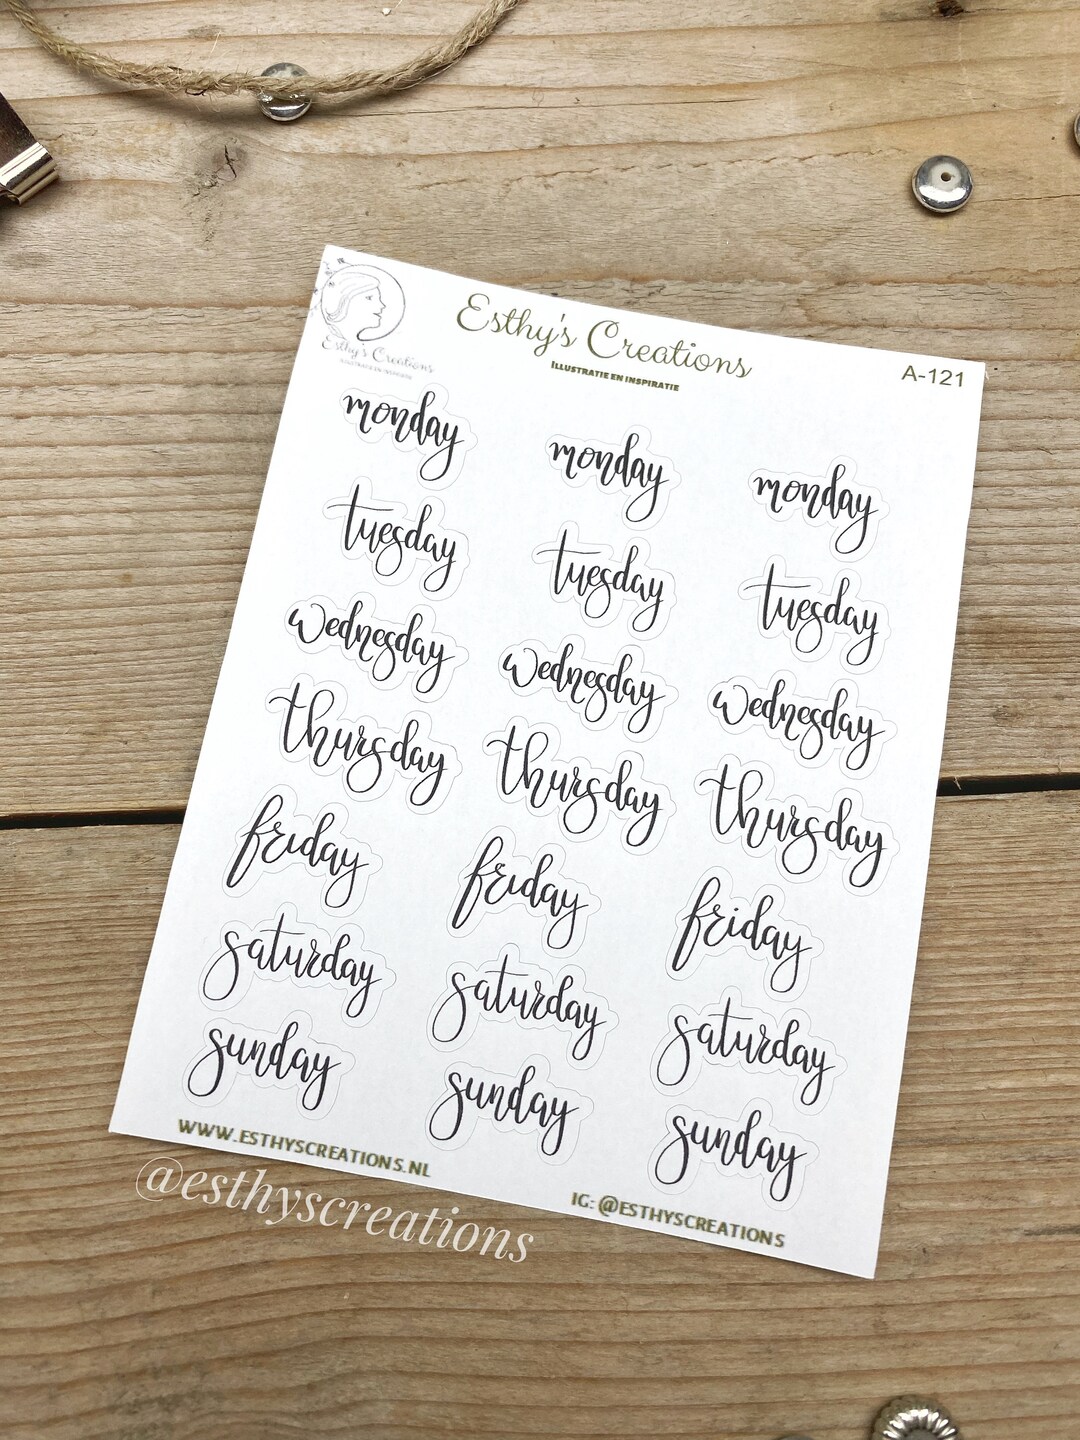 Esthy's Creations
ILLUSTRATIE EN INSPIRATIE
Esthy's Creations
ILLUSTRATIE EN INSPIRATIE
A-121
monday monday monday
tuesday tuesday tuesday
wednesday wednesday wednesday
thursday thursday thursday
friday friday friday
saturday saturday saturday
sunday sunday sunday
WWW.ESTHYSCREATIONS.NL
IG: @ESTHYSCREATIONS
@esthyscreations